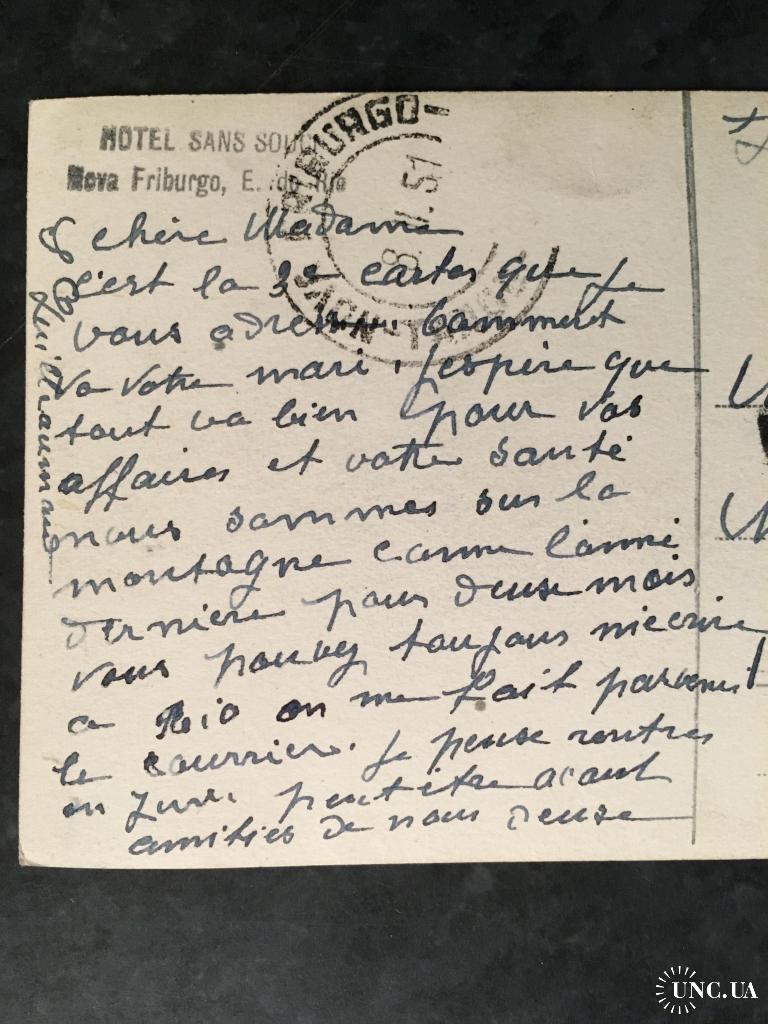 HOTEL SANS SOUCI
Nova Friburgo, E. do Rio
FRIBURGO-
51
chère Madame
c'est la 3e cartes que je
vous adresse. Comment
va votre mari. j'espère que
tout va bien pour vos
affaires et votre santé
nous sommes sur la
montagne comme l'anné
dernière pour deuse mois
vous pouvez toujous m'ecrire
a Rio on me fait parvenir
le courrier. je pense rentrer
en Juin. peut être avant
amitiés de nous deuse
UNC.UA